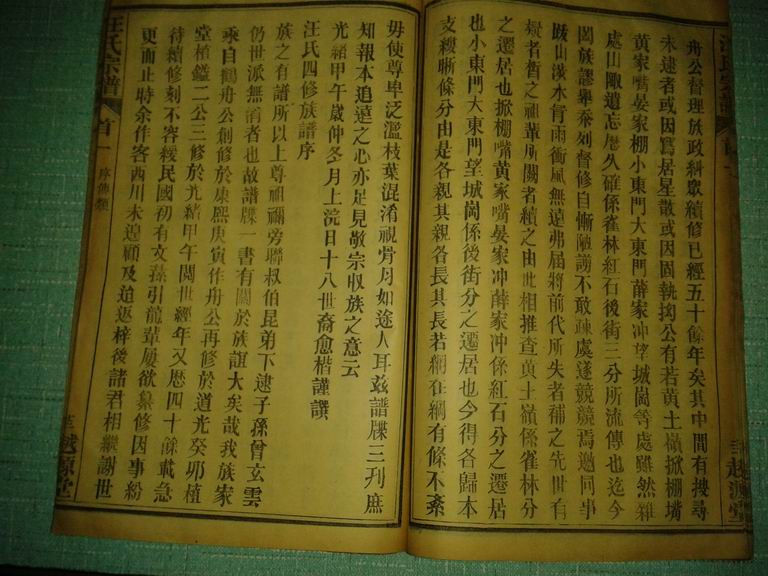 舟公督理族政糾眾續修已經五十餘年矣其中間有搜尋
未逮者或因寫居星散或因固執拗公有若黃土嶺掀棚嘴
黃家嘴晏家棚小東門大東門薛家冲望城崗等處雖然雜
處山陬遺忘曆久確係雀林紅石後街三分所流傳也迄今
闔族謬舉泰列督修自慚陋謭不敢疎虞遂競競焉邀同事
跋山涉水冐雨衝風無遠弗屆將前代所失者補之先世有
疑者晳之祖輩所闕者續之由此相推查黃土嶺係雀林分
之遷居也掀棚嘴黃家嘴晏家冲薛家冲係紅石分之遷居
也小東門大東門望城崗係後街分之遷居也今得各歸本
支縷晰條分由是各親其親各長其長若網在綱有條不紊
毋使尊卑泛濫枝葉混淆視骨肉如途人耳兹譜牒三刋庶
知報本追遠之心亦足見敬宗収族之意云
光緒甲午歲仲冬月上浣日十八世裔愈楷謹譔
汪氏四修族譜序
族之有譜所以上尊祖禰旁聯叔伯昆弟下逮子孫曾玄雲
仍世派無淆者也故譜牒一書有關於族誼大矣哉我族家
乘自鶴舟公創修於康熙庚寅作舟公再修於道光癸卯植
堂植鎰二公三修於光緒甲午閱世經年又歷四十餘載急
待續修刻不容緩民國初有文蓀引龍輩屢欲纂修因事紛
更而止時余作客西川未遑顧及迨返梓後諸君相繼謝世
汪氏宗譜
首一
序傳類
越源堂